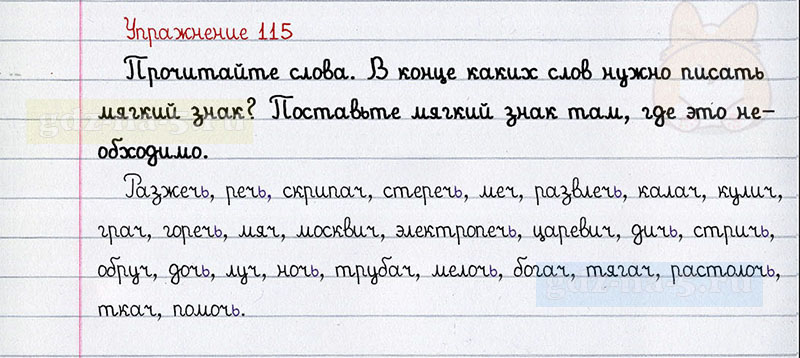 Упражнение 115
Прочитайте слова. В конце каких слов нужно писать
мягкий знак? Поставьте мягкий знак там, где это не-
обходимо.
Разжечь, речь, скрипач, стеречь, меч, развлечь, калач, кулич,
грач, горечь, мяч, москвич, электропечь, царевич, дичь, стричь,
обруч, дочь, луч, ночь, трубач, мелочь, богач, тягач, растолочь,
ткач, помочь.
gdz-na-5.ru
gdz-na-5.ru